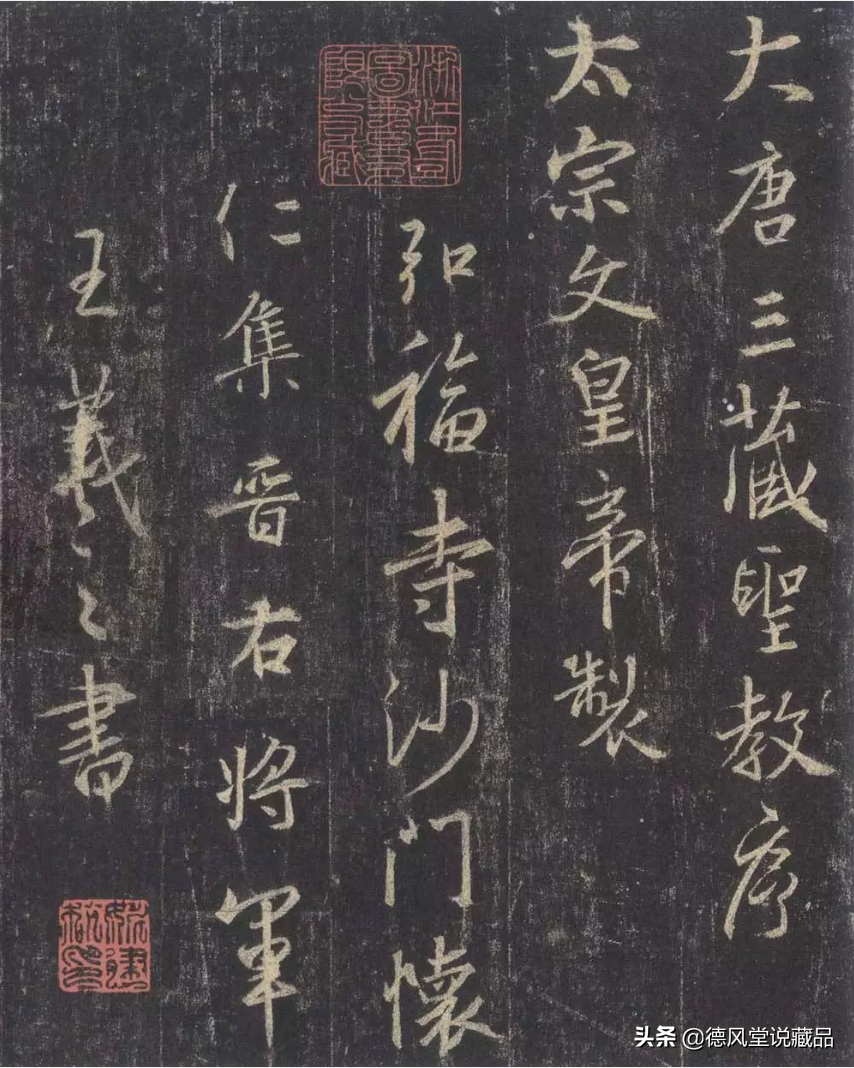 大唐三藏聖教序
太宗文皇帝製
弘福寺沙門懷
仁集晉右將軍
王羲之書
头条 @德风堂说藏品